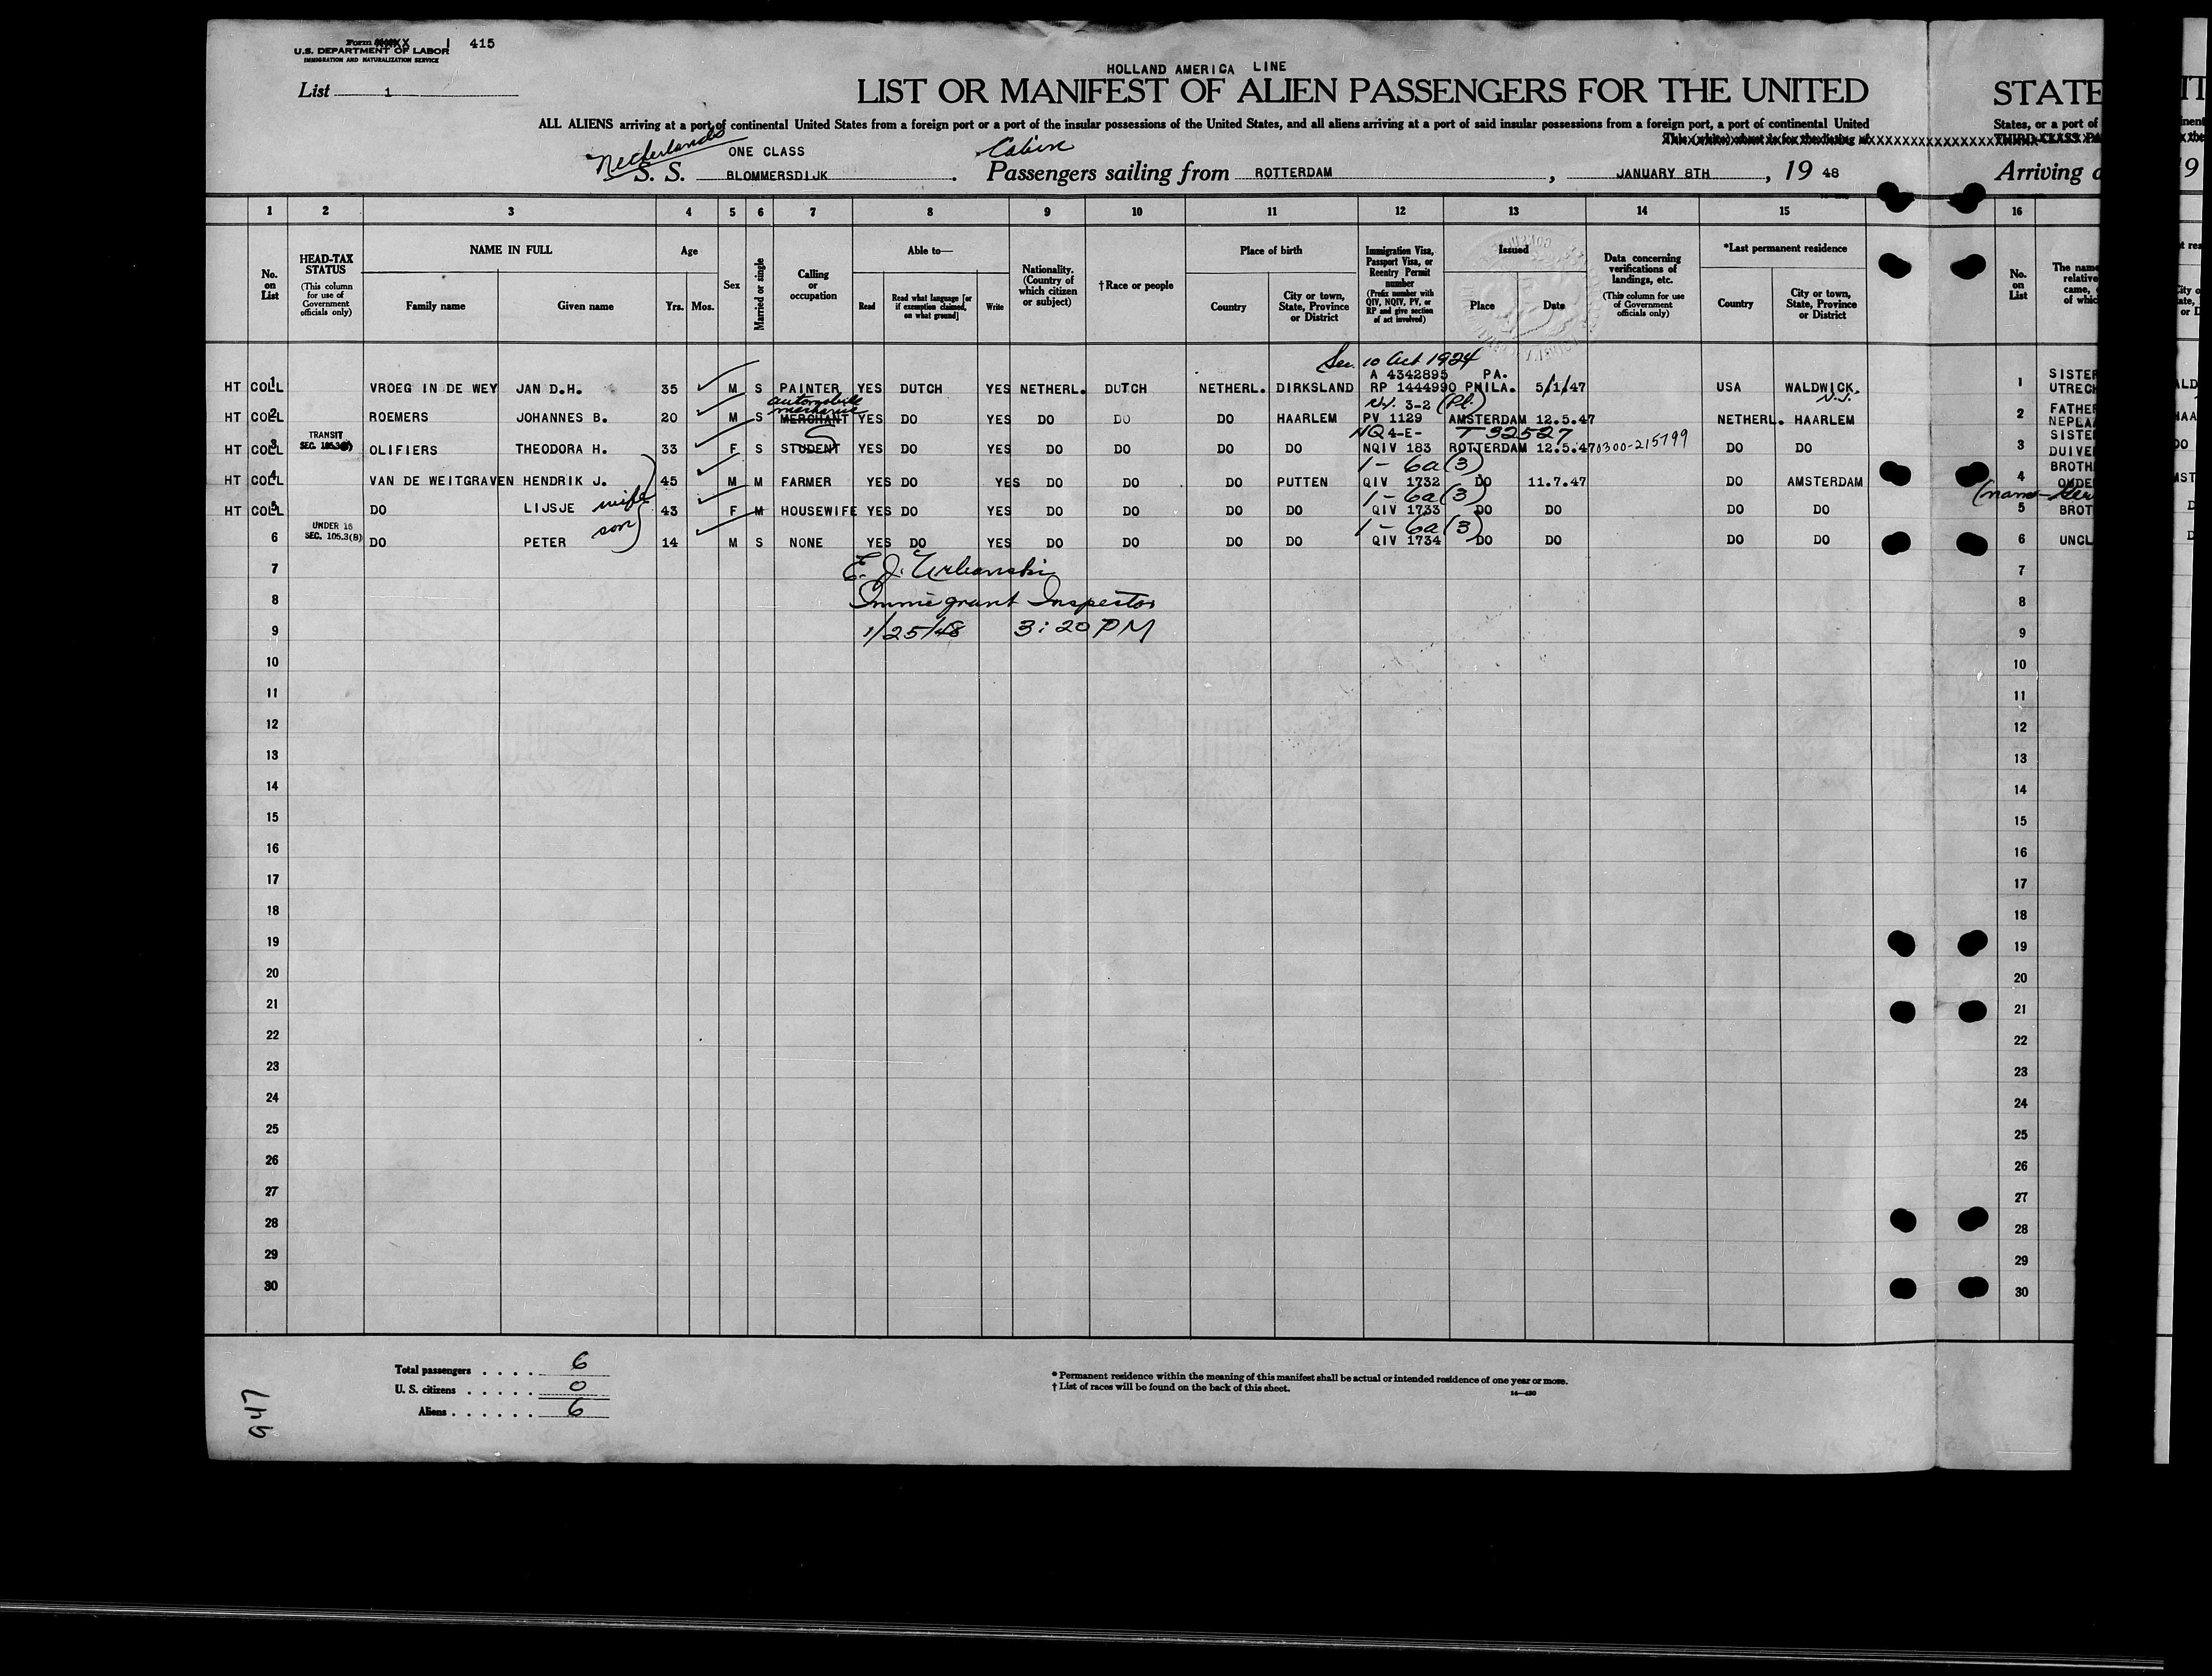 Form XXXXX I 415
U.S. DEPARTMENT OF LABOR
IMMIGRATION AND NATURALIZATION SERVICE
List 1
HOLLAND AMERICA LINE
LIST OR MANIFEST OF ALIEN PASSENGERS FOR THE UNITED
STATE
ALL ALIENS arriving at a port of continental United States from a foreign port or a port of the insular possessions of the United States, and all aliens arriving at a port of said insular possessions from a foreign port, a port of continental United
States, or a port of
This (white) sheet is for the listing of
THIRD-CLASS PA
Netherlands ONE CLASS Cabin
S. S. BLOMMERSDIJK. Passengers sailing from ROTTERDAM, JANUARY 8TH, 19 48
Arriving
1 2 3 4 5 6 7 8 9 10 11 12 13 14 15 16
No. on List
HEAD-TAX STATUS (This column for use of Government officials only)
NAME IN FULL
Family name Given name
Age
Yrs. Mos.
Sex
Married or single
Calling or occupation
Able to—
Read Read what language [or if exemption claimed, on what ground] Write
Nationality. (Country of which citizen or subject)
†Race or people
Place of birth
Country City or town, State, Province or District
Immigration Visa, Passport Visa, or Reentry Permit number (Prefix number with QIV, NQIV, PV, or RP and give section of act involved)
Issued
Place Date
Data concerning verifications of landings, etc. (This column for use of Government officials only)
*Last permanent residence
Country City or town, State, Province or District
No. on List
The name
relative
came,
of whic
Sec. 10 Act 1924
A 4342895 PA.
HT COLL 1 VROEG IN DE WEY JAN D.H. 35 M S PAINTER YES DUTCH YES NETHERL. DUTCH NETHERL. DIRKSLAND RP 1444990 PHILA. 5/1/47 USA WALDWICK. N.J. 1 SISTER UTREC
automobile mechanic 3-2 (Pl)
HT COLL 2 ROEMERS JOHANNES B. 20 M S MERCHANT YES DO YES DO DO DO HAARLEM PV 1129 AMSTERDAM 12.5.47 NETHERL. HAARLEM 2 FATHER NEPLA
TRANSIT SEC. 105.3(8) NQ 4-E- T 32527
HT COLL 3 OLIFIERS THEODORA H. 33 F S STUDENT YES DO YES DO DO DO DO NQIV 183 ROTTERDAM 12.5.47 0300-215799 DO DO 3 SISTE DUIVE
1- 6a(3)
HT COLL 4 VAN DE WEITGRAVEN HENDRIK J. 45 M M FARMER YES DO YES DO DO DO PUTTEN QIV 1732 DO 11.7.47 DO AMSTERDAM 4 BROTH OUDE
1- 6a(3)
HT COLL 5 DO LIJSJE wife 43 F M HOUSEWIFE YES DO YES DO DO DO DO QIV 1733 DO DO DO DO 5 BROT
UNDER 16 SEC. 105.3(8) 1- 6a(3)
6 DO PETER son 14 M S NONE YES DO YES DO DO DO DO QIV 1734 DO DO DO DO 6 UNCL
7 E. J. Urbanski 7
8 Immigrant Inspector 8
9 1/25/48 3:20 PM 9
10 10
11 11
12 12
13 13
14 14
15 15
16 16
17 17
18 18
19 19
20 20
21 21
22 22
23 23
24 24
25 25
26 26
27 27
28 28
29 29
30 30
Total passengers . . . . 6
U. S. citizens . . . . . 0
Aliens . . . . . . 6
* Permanent residence within the meaning of this manifest shall be actual or intended residence of one year or more.
† List of races will be found on the back of this sheet.
947